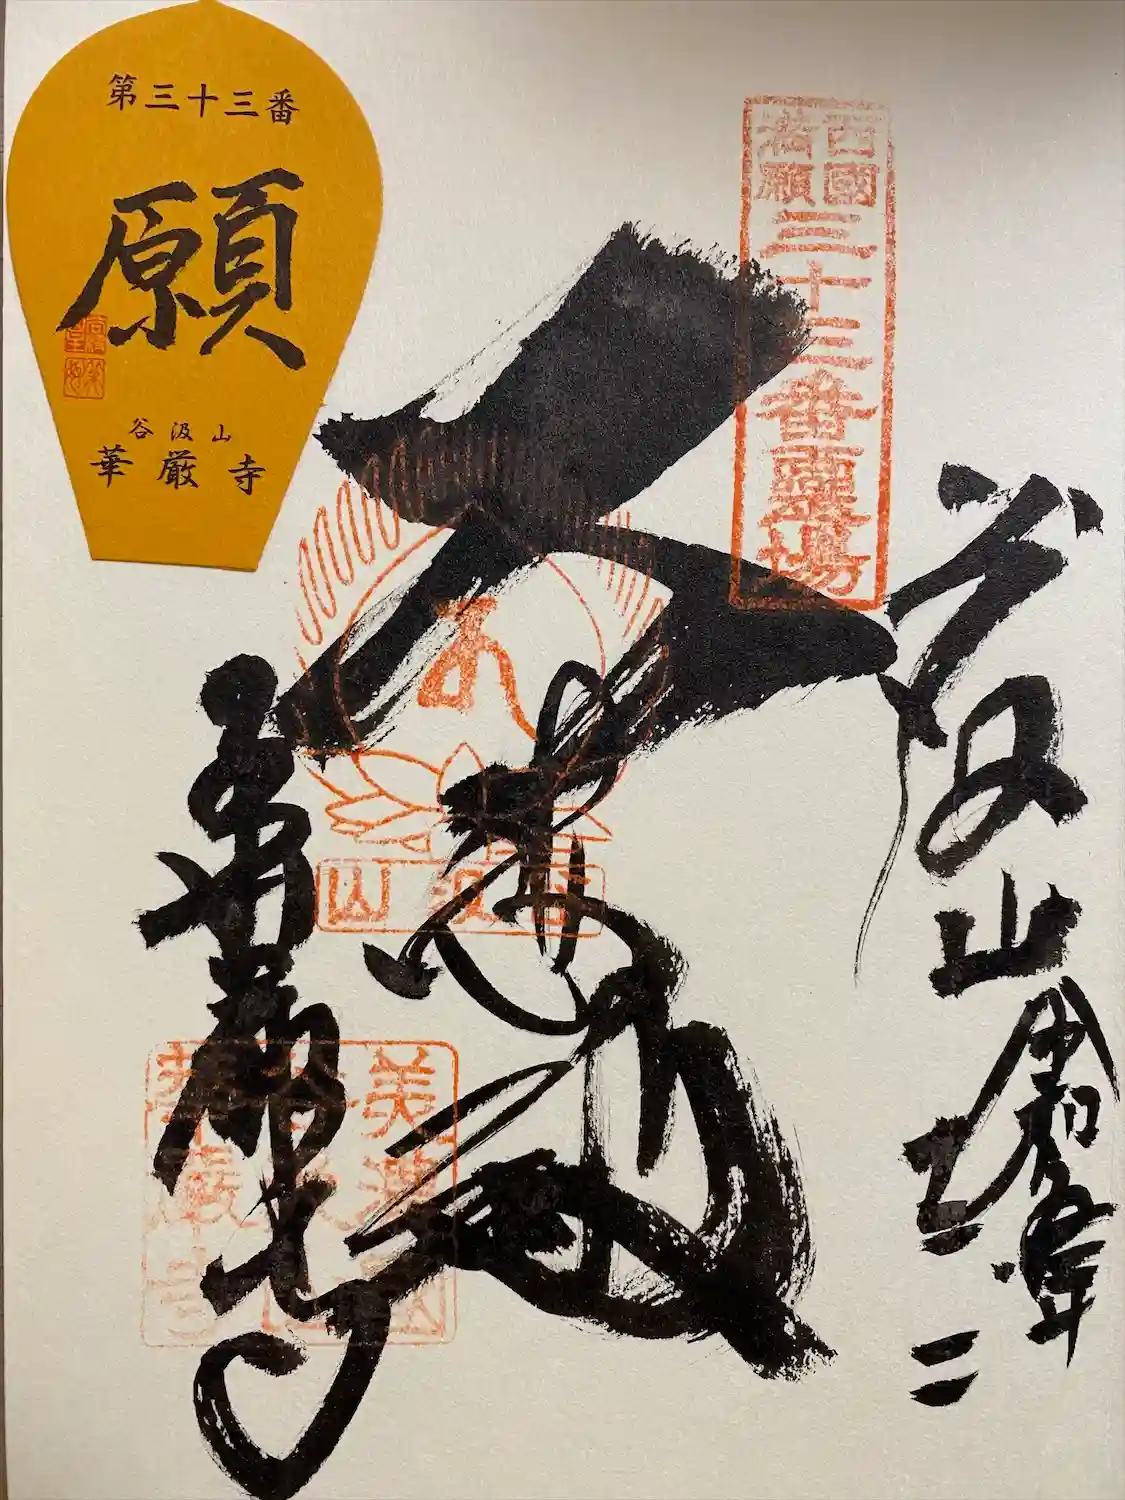 第三十三番
願
谷汲山
華厳寺
西國
満願
三十三番霊場
谷汲山
令和五年
三
二
大悲閣
谷汲山
華厳寺
美濃